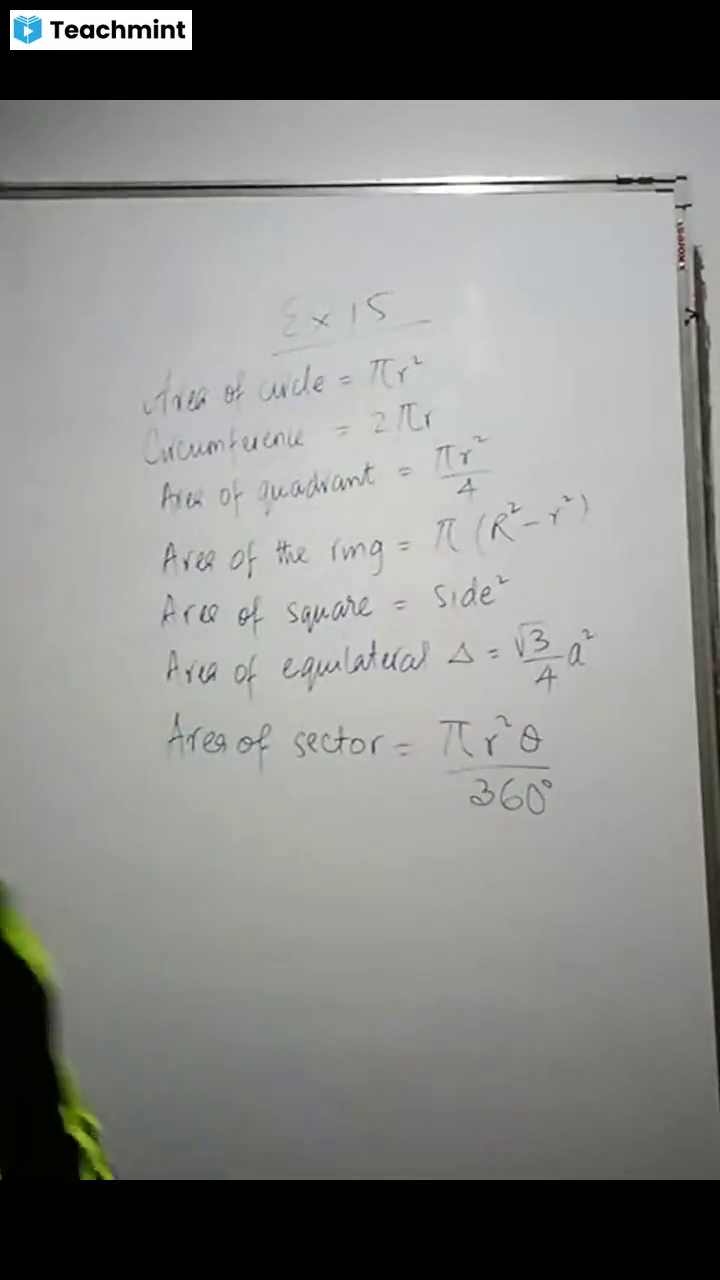 Teachmint
Kores
Ex 15
Area of circle = πr²
Circumference = 2πr
Area of quadrant = πr²/4
Area of the ring = π (R² - r²)
Area of square = side²
Area of equilateral Δ = √3/4 a²
Area of sector = πr²θ/360°